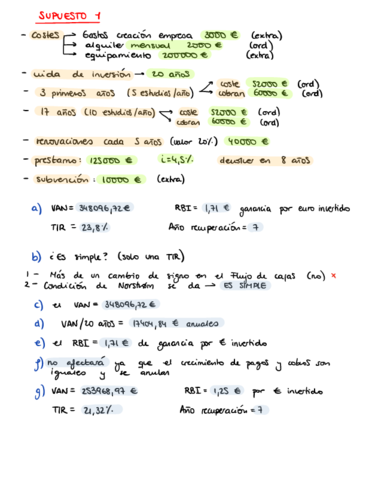 SUPUESTO 1
- costes → Gastos creación empresa 3000 € (extra)
→ alquiler mensual 2000 € (ord)
→ equipamiento 200000 € (extra)
- vida de inversión → 20 años
- 3 primeros años (5 estudios/año) → coste 52000 € (ord)
→ cobran 60000 € (ord)
- 17 años (10 estudios/año) → coste 52000 € (ord)
→ cobran 60000 € (ord)
- renovaciones cada 5 años (valor 20%) 40000 €
- préstamo: 125000 € i=4,5% devolver en 8 años
- subvención: 10000 € (extra)
a) VAN = 348096,72 € RBI = 1,71 € garancia por euro invertido
TIR = 23,8% Año recuperación = 7
b) ¿Es simple? (solo una TIR)
1 - Más de un cambio de signo en el Flujo de cajas (no) ×
2 - Condición de Norstrom se da → ES SIMPLE
c) el VAN = 348096,72 €
d) VAN/20 años = 17404,84 € anuales
e) el RBI = 1,71 € de garancia por € invertido
f) no afectará ya que el crecimiento de pagos y cobros son
iguales y se anulan
g) VAN = 253968,97 € RBI = 1,25 € por € invertido
TIR = 21,32% Año recuperación = 7